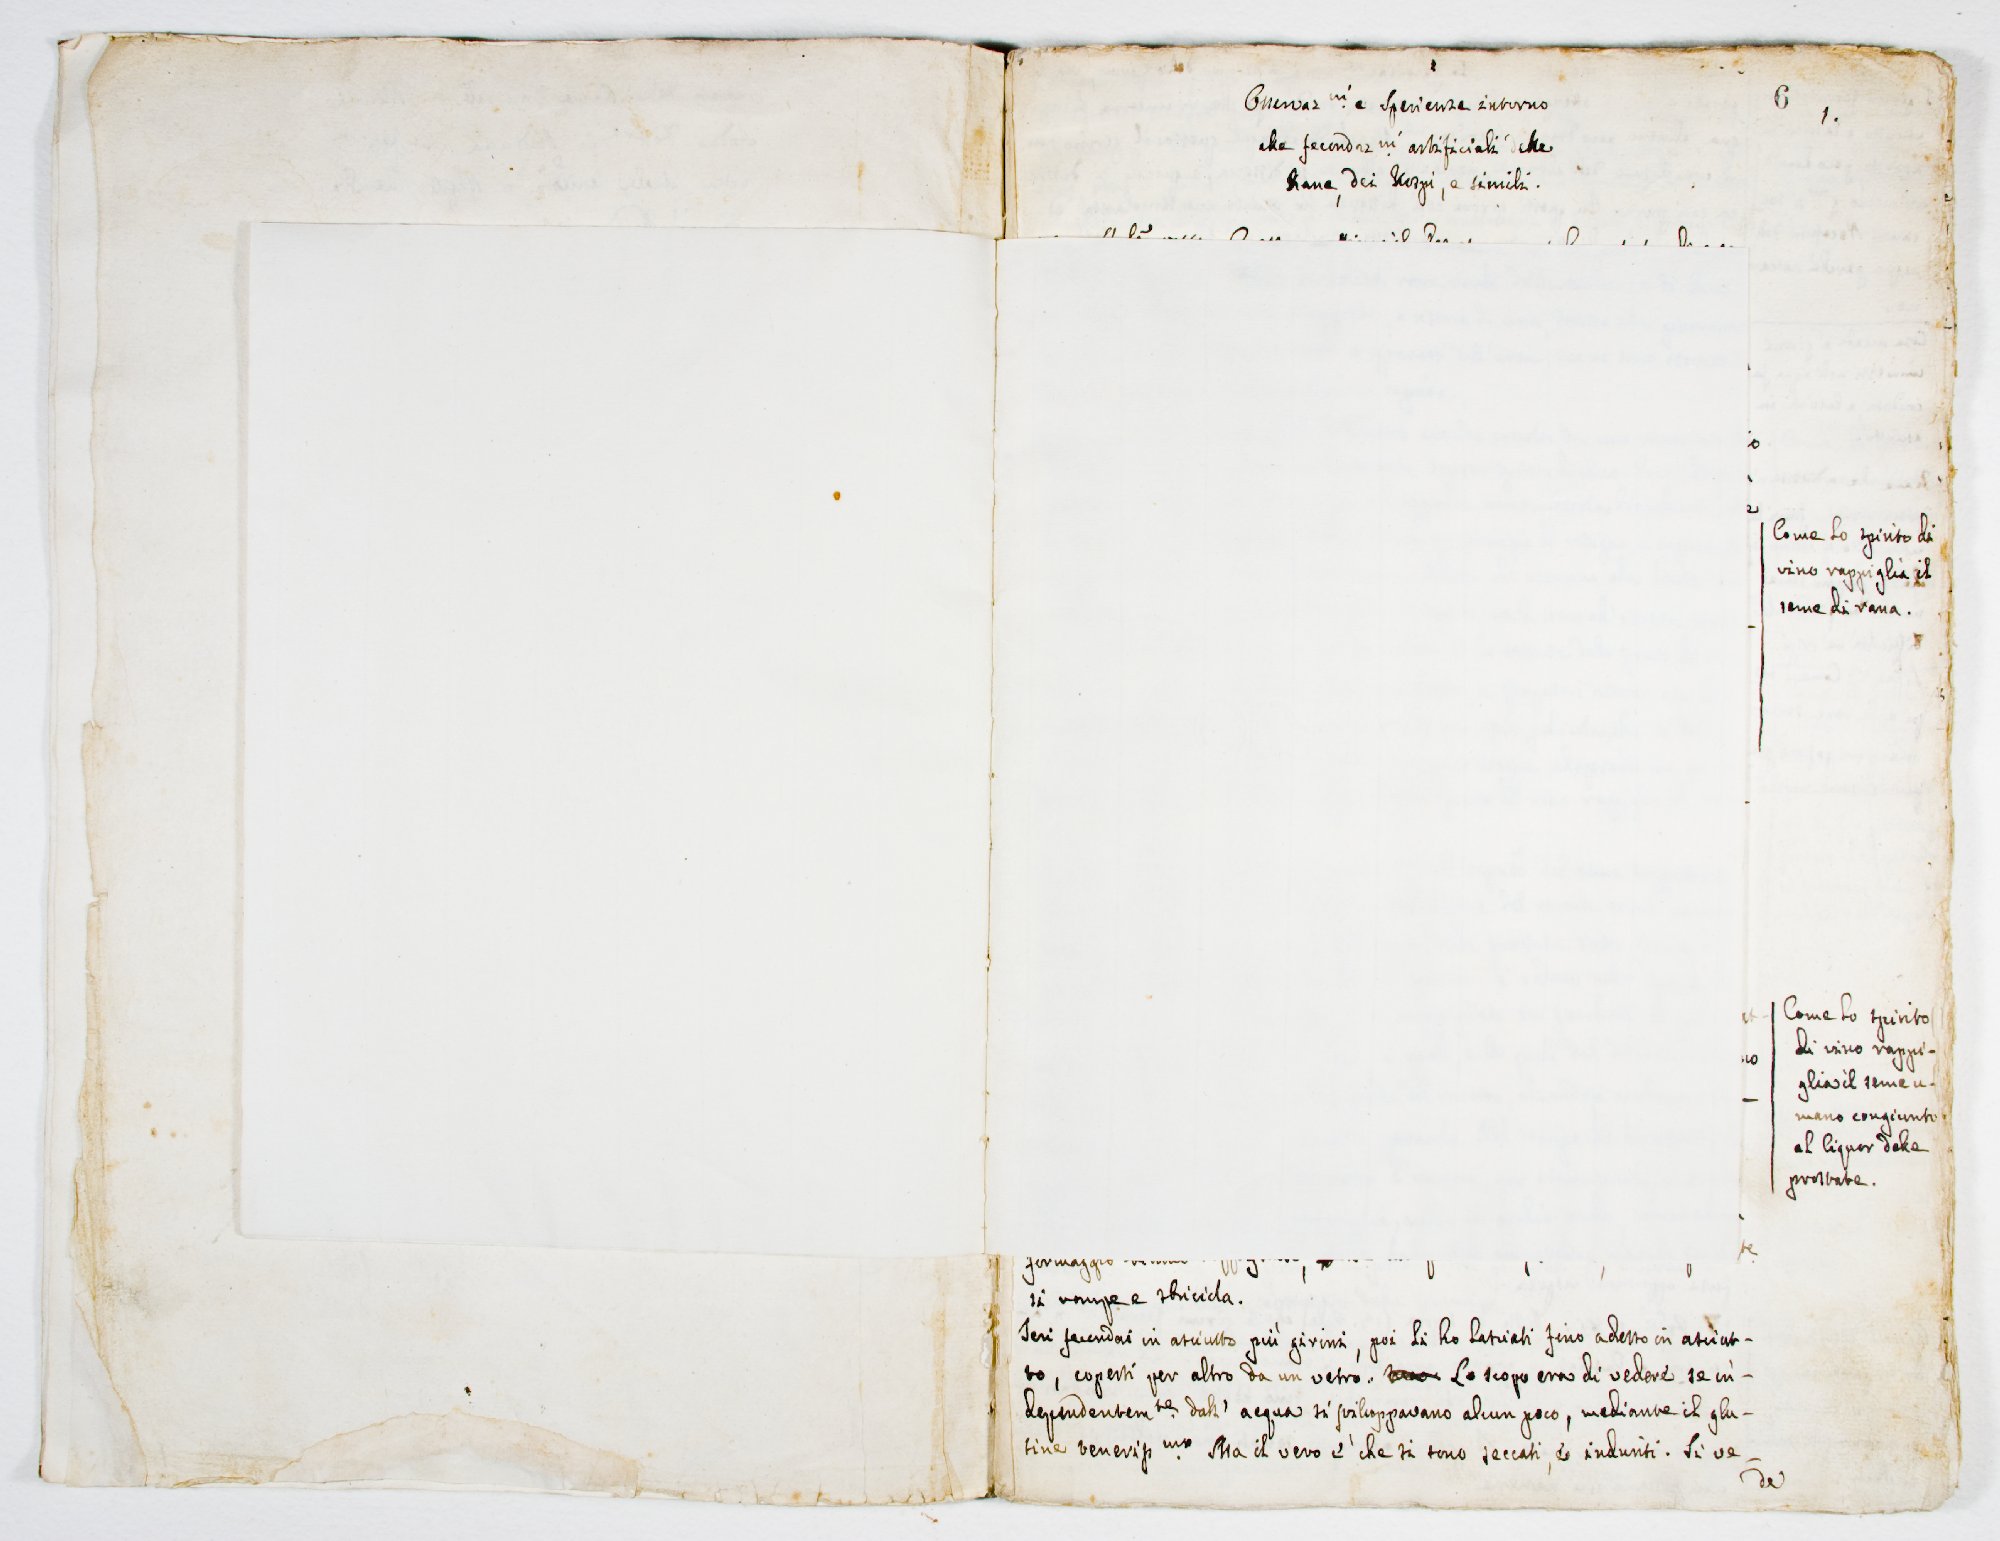 6
1.
Osservaz.ni e Sperienze intorno
alle fecondaz.ni artificiali delle
Rane, dei Rospi, e simili.
Come lo spirito di
vino rappiglia il
seme di rana.
Come lo spirito
di vino rappi-
glia il seme u-
mano congiunto
al liquor delle
prostate.
formaggio
si rompe e sbricida.
Ieri fecondai in asciutto più girini, poi li ho lasciati fino adesso in asciut-
to, coperti per altro da un vetro. Lo scopo era di vedere se in-
dipendentem.te dall' acqua si sviluppavano alcun poco, mediante il glu-
tine teneriss.mo Ma il vero è che si sono seccati, e induriti. Si ve-
de